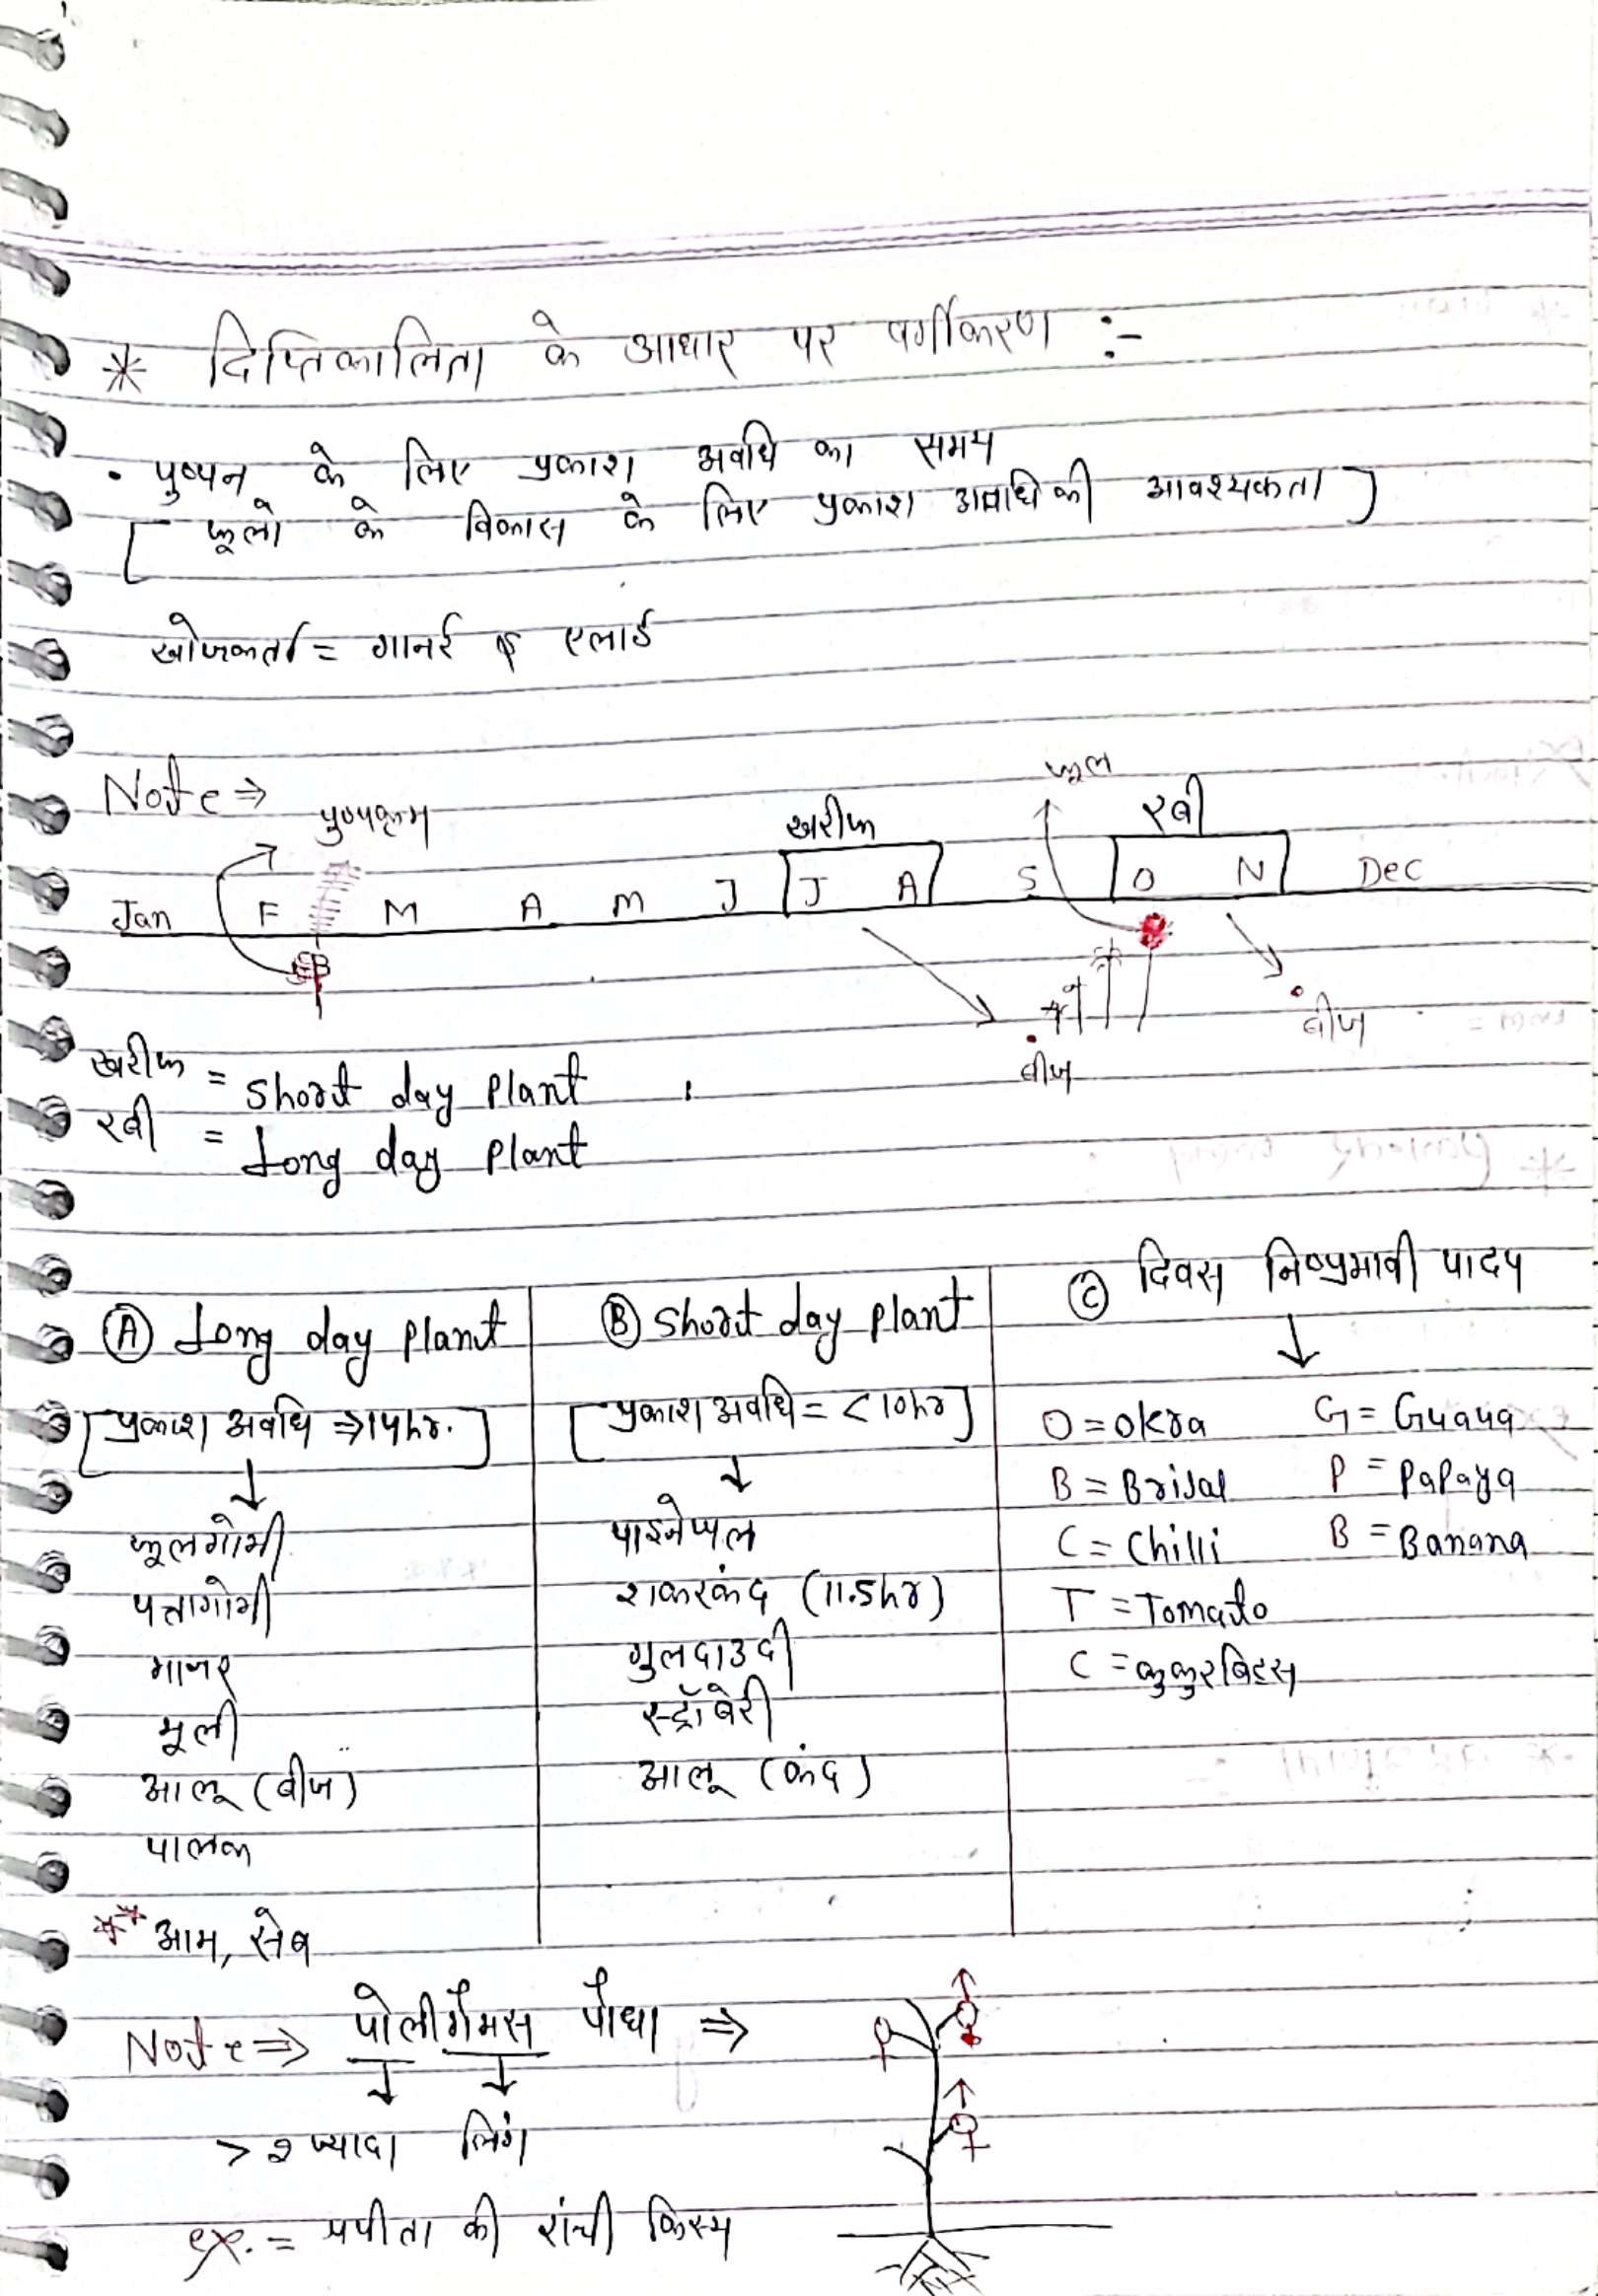 * दिप्तिकालिता के आधार पर वर्गीकरण :-
• पुष्पन के लिए प्रकाश अवधि का समय
[ फूलो के विकास के लिए प्रकाश अवधि की आवश्यकता ]
खोजकर्ता = गार्नर & एलार्ड
Note ⇒
पुष्पक्रम
खरीफ
फूल
रबी
Jan F M A M J J A S O N Dec
बीज
बीज
खरीफ = short day plant
रबी = Long day plant
Ⓐ Long day plant
[प्रकाश अवधि ⇒14hr.]
↓
फूलगोभी
पत्तागोभी
गाजर
मूली
आलू (बीज)
पालक
Ⓑ short day plant
[प्रकाश अवधि = <10hr]
↓
पाइनेप्पल
शकरकंद (11.5hr)
गुलदाउदी
स्ट्रॉबेरी
आलू (कंद)
Ⓒ दिवस निष्प्रभावी पादप
↓
O = okra G = Guava
B = Brijal P = Papaya
C = Chilli B = Banana
T = Tomato
C = कुकुरबिट्स
** आम, सेब
Note ⇒ पोलीगैमस पौधा ⇒
↓ ↓
> २ ज्यादा लिंग
ex. = पपीता की रांची किस्म